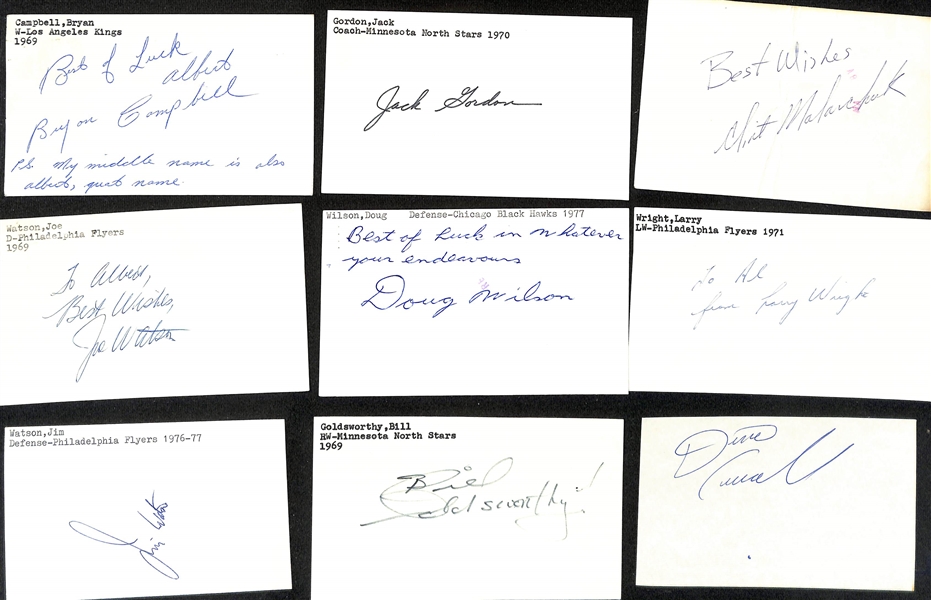 Campbell,Bryan
W-Los Angeles Kings
1969
Best of Luck
albert
Bryan Campbell
P.S. My middle name is also
albert, great name.
Gordon,Jack
Coach-Minnesota North Stars 1970
Jack Gordon
Best Wishes
Clint Malarchuk
Watson,Joe
D-Philadelphia Flyers
1969
To Albert,
Best Wishes,
Joe Watson
Wilson,Doug Defense-Chicago Black Hawks 1977
Best of Luck in Whatever
your endeavours
Doug Wilson
Wright,Larry
LW-Philadelphia Flyers 1971
To Al
from Larry Wright
Watson,Jim
Defense-Philadelphia Flyers 1976-77
Jim Watson
Goldsworthy,Bill
RW-Minnesota North Stars
1969
Bill
Goldsworthy!